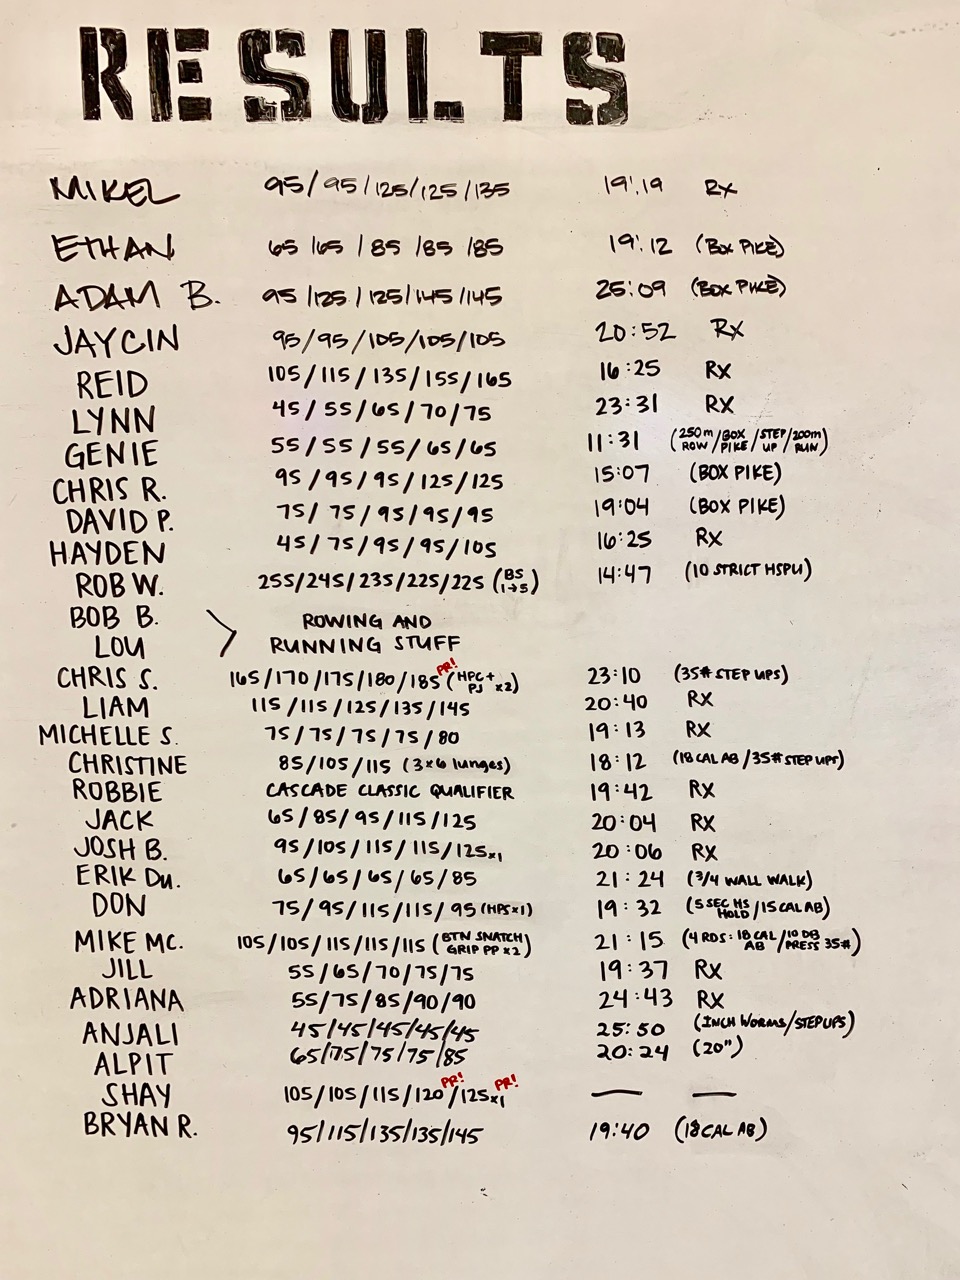 RESULTS
MIKEL 95/95/125/125/135 19:19 RX
ETHAN 65/65/85/85/85 19:12 (BOX PIKE)
ADAM B. 95/125/125/145/145 25:09 (BOX PIKE)
JAYCIN 95/95/105/105/105 20:52 RX
REID 105/115/135/155/165 16:25 RX
LYNN 45/55/65/70/75 23:31 RX
GENIE 55/55/55/65/65 11:31 (250m ROW/BOX PIKE/STEP UP/200m RUN)
CHRIS R. 95/95/95/125/125 15:07 (BOX PIKE)
DAVID P. 75/75/95/95/95 19:04 (BOX PIKE)
HAYDEN 45/75/95/95/105 16:25 RX
ROB W. 255/245/235/225/225 (BS 1→5) 14:47 (10 STRICT HSPU)
BOB B. > ROWING AND
LOU RUNNING STUFF
CHRIS S. 165/170/175/180/185 PR! (HPC+ PJ x2) 23:10 (35# STEP UPS)
LIAM 115/115/125/135/145 20:40 RX
MICHELLE S. 75/75/75/75/80 19:13 RX
CHRISTINE 85/105/115 (3x6 lunges) 18:12 (18 CAL AB/35# STEP UPS)
ROBBIE CASCADE CLASSIC QUALIFIER 19:42 RX
JACK 65/85/95/115/125 20:04 RX
JOSH B. 95/105/115/115/125x1 20:06 RX
ERIK DU. 65/65/65/65/85 21:24 (3/4 WALL WALK)
DON 75/95/115/115/95 (HPSx1) 19:32 (5 SEC HS HOLD/15 CAL AB)
MIKE MC. 105/105/115/115/115 (BTN SNATCH GRIP PP x2) 21:15 (4 RDS: 18 CAL AB/10 DB PRESS 35#)
JILL 55/65/70/75/75 19:37 RX
ADRIANA 55/75/85/90/90 24:43 RX
ANJALI 45/45/45/45/45 25:50 (INCH WORMS/STEPUPS)
ALPIT 65/75/75/75/85 20:24 (20")
SHAY 105/105/115/120 PR!/125x1 PR! — —
BRYAN R. 95/115/135/135/145 19:40 (18 CAL AB)